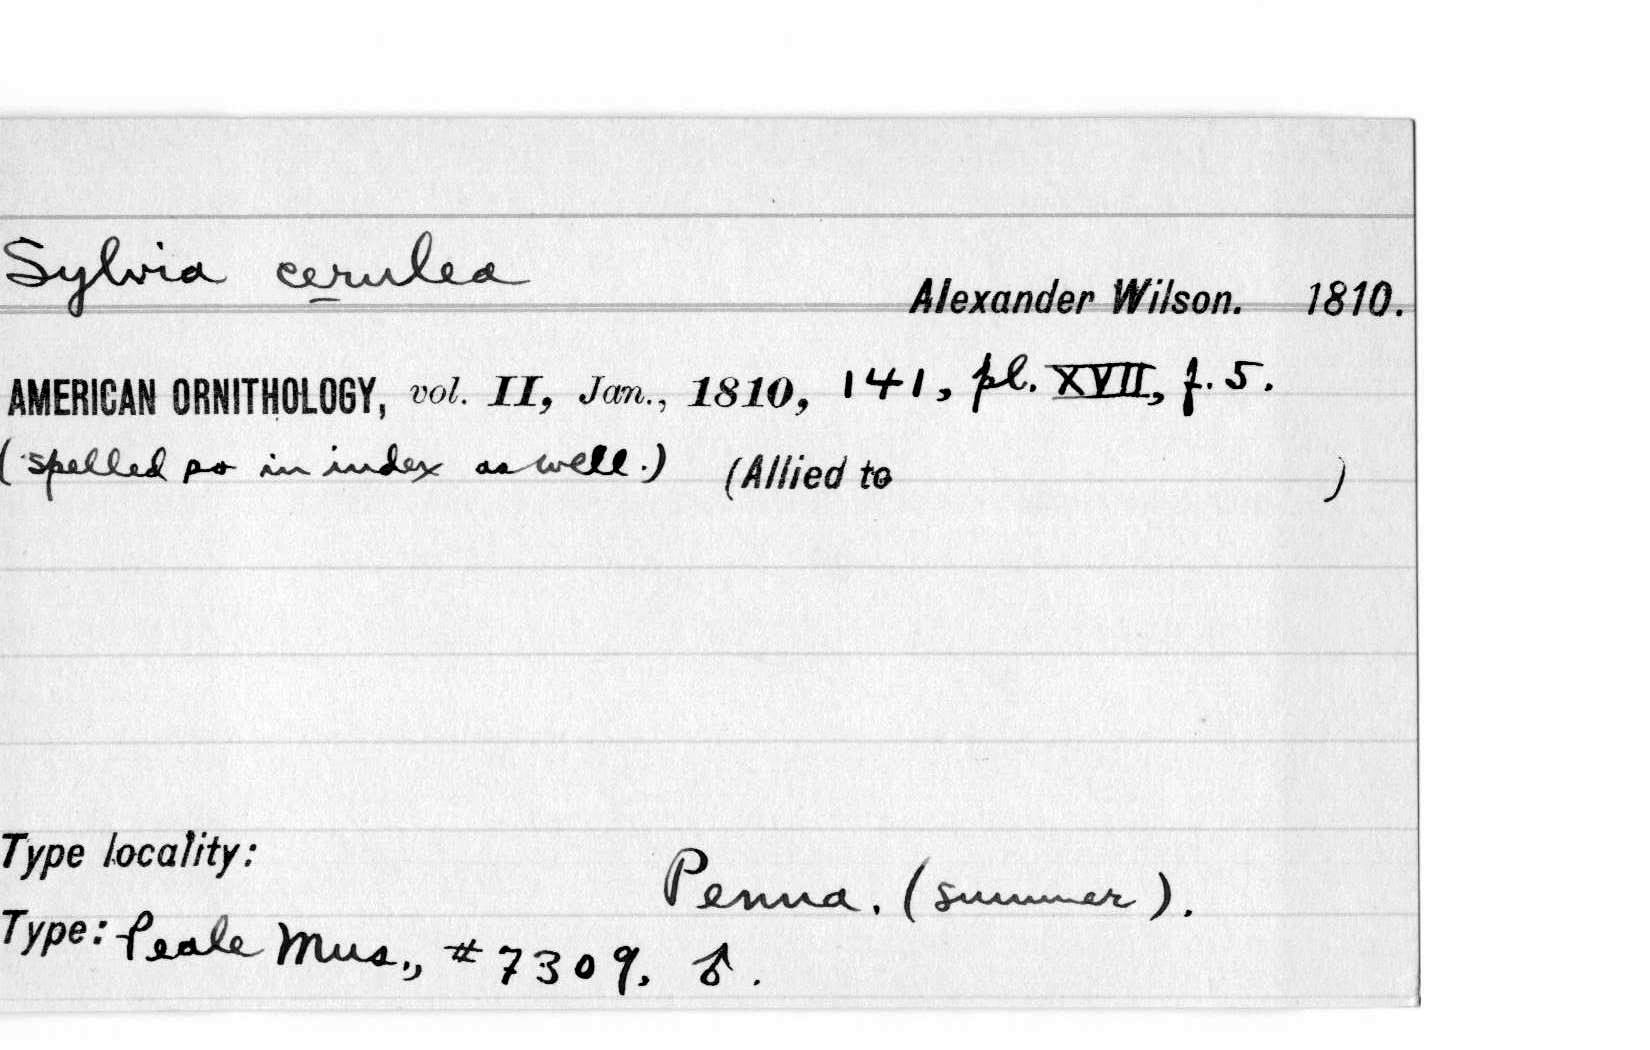 Sylvia cerulea
Alexander Wilson. 1810.
AMERICAN ORNITHOLOGY, vol. II, Jan., 1810, 141, pl. XVII, f. 5.
(spelled so in index as well.) (Allied to )
Type locality:
Penna. (summer).
Type: Peale Mus., # 7309, ♂.